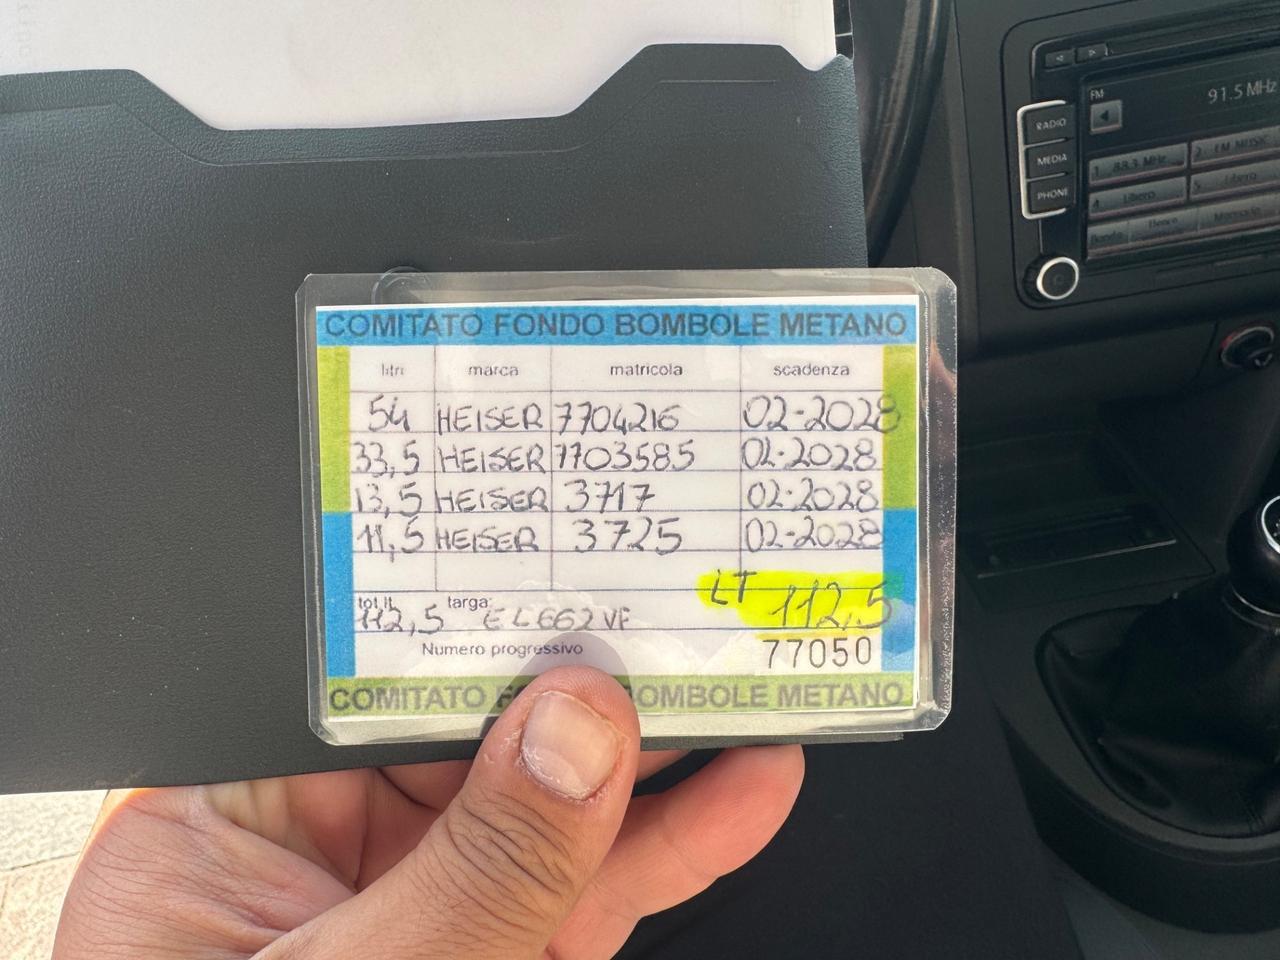 COMITATO FONDO BOMBOLE METANO
litri marca matricola scadenza
54 HEISER 7704216 02-2028
33,5 HEISER 7703585 02-2028
13,5 HEISER 3717 02-2028
11,5 HEISER 3725 02-2028
LT 112,5
tot.lt. 112,5 targa: EL662VF
Numero progressivo 77050
COMITATO FO BOMBOLE METANO
FM
91.5 MHz
RADIO
MEDIA
PHONE
1 88.3 MHz
2 FM MUSIC
4 Libero
5 Libero
Banda Elenco Memoria